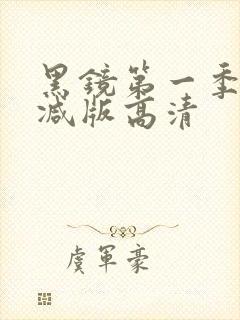 黑鏡第一季
减版高清
虞軍豪